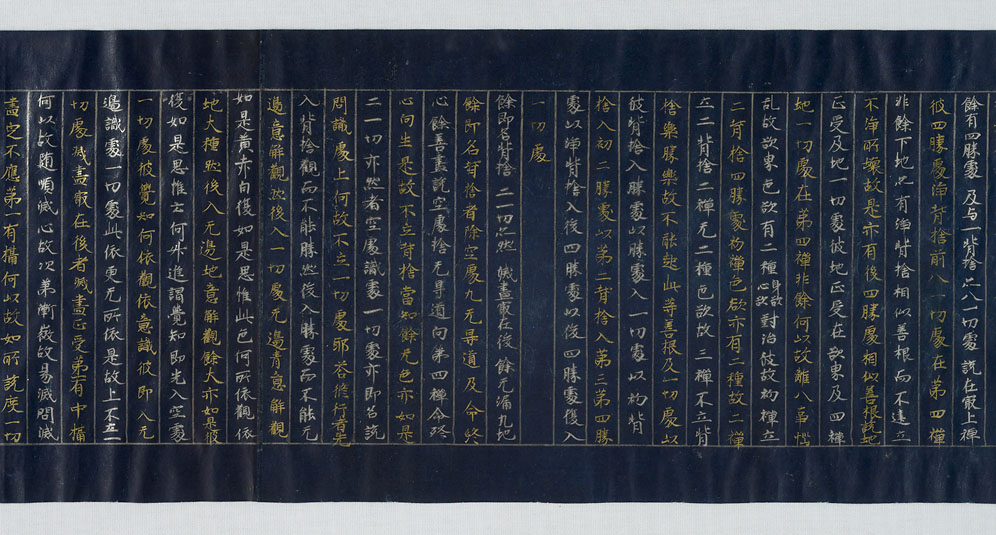 餘有四勝處及与一背捨上八一切處說在最上禪
彼四勝處淨背捨前八一切處在第四禪
非餘下地也有淨背捨相似善根而不達立
不淨所壞故是亦有後四勝處相似善根說地
正受及地一切處彼地正受在欲東及四禪
地一切處在第四禪非餘何以故離八事惱
乱故欲東色欲有二種身欲心欲對治彼故初禪立
二背捨四勝處初禪色欲亦有二種故二禪
立二背捨二禪无二種色欲故三禪不立背
捨樂勝樂故不能起此等善根及一切處以
彼背捨入勝處以勝處入一切處以初背
捨入初二勝處以第二背捨入第三第四勝
處以淨背捨入後四勝處以後四勝處復入
一切處
餘即名背捨二一切亦然滅盡最在後餘无漏九地
餘即名背捨者除空處九无导道及命終
心餘善盡說空處捨无导道向第四禪命終
心向生是故不立背捨當知餘无色亦如是
二一切亦然者空處識處一切亦即名說
問識處上何故不立一切處耶答脩行者先
入背捨觀而不能勝然後入勝處而不能无
邊意解觀然後入一切處无邊青意解觀
如是黃赤白復如是思惟此色何所依觀依
地大種然後入无邊地意解觀餘大亦如是彼
復如是思惟云何升進謂覺知即先入空處
一切處彼覺知何依觀依意識彼即入无
邊識處一切處此依更无所依是故上不立一
切處滅盡最在後者滅盡正受第一有中攝
何以故隨順滅心故次第漸微故易滅問滅
盡定不應第一有攝何以故如所說度一切